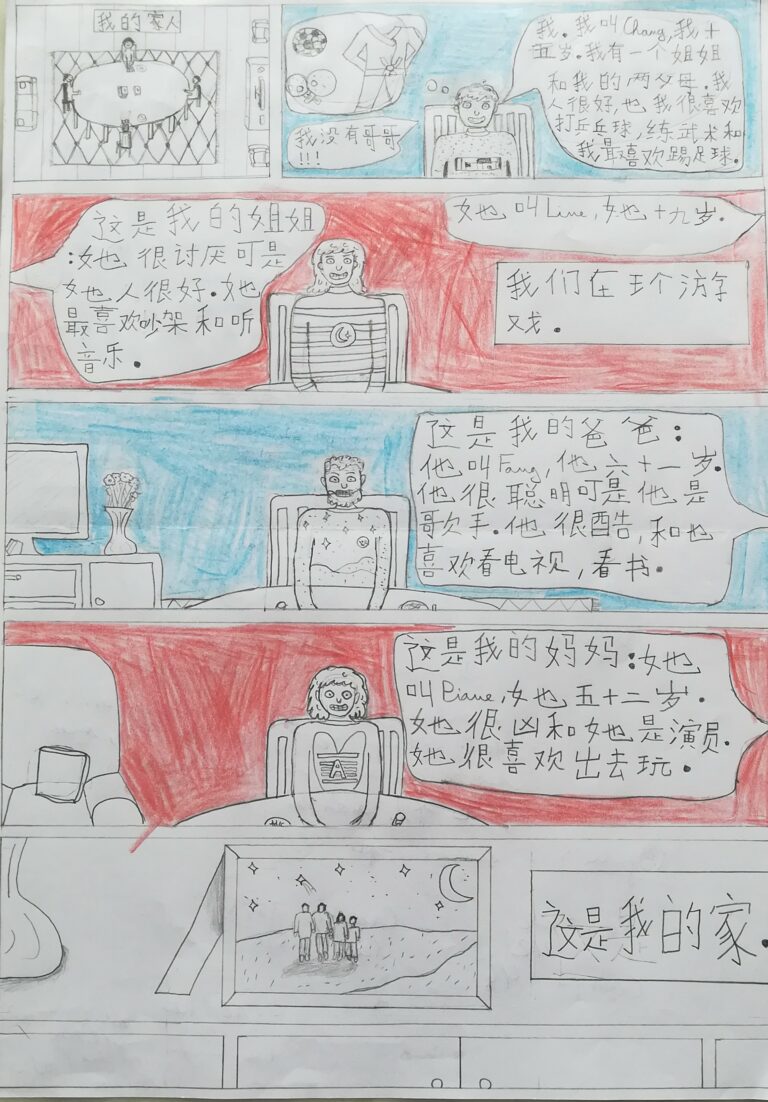 我的家人
我.我叫Chang,我十
五岁.我有一个姐姐
和我的两父母.我
人很好,也我很喜欢
打乒乓球,练武术和
我最喜欢踢足球.
我没有哥哥
!!!
这是我的姐姐
:她很讨厌可是
她人很好.她
最喜欢吵架和听
音乐.
她叫Line,她十九岁.
我们在玨个游
戏.
这是我的爸爸:
他叫Fang,他六十一岁.
他很聪明可是他是
歌手.他很酷,和也
喜欢看电视,看书.
这是我的妈妈:她
叫Piane,她五十二岁.
她很凶和她是演员.
她很喜欢出去玩.
A
这是我的家.